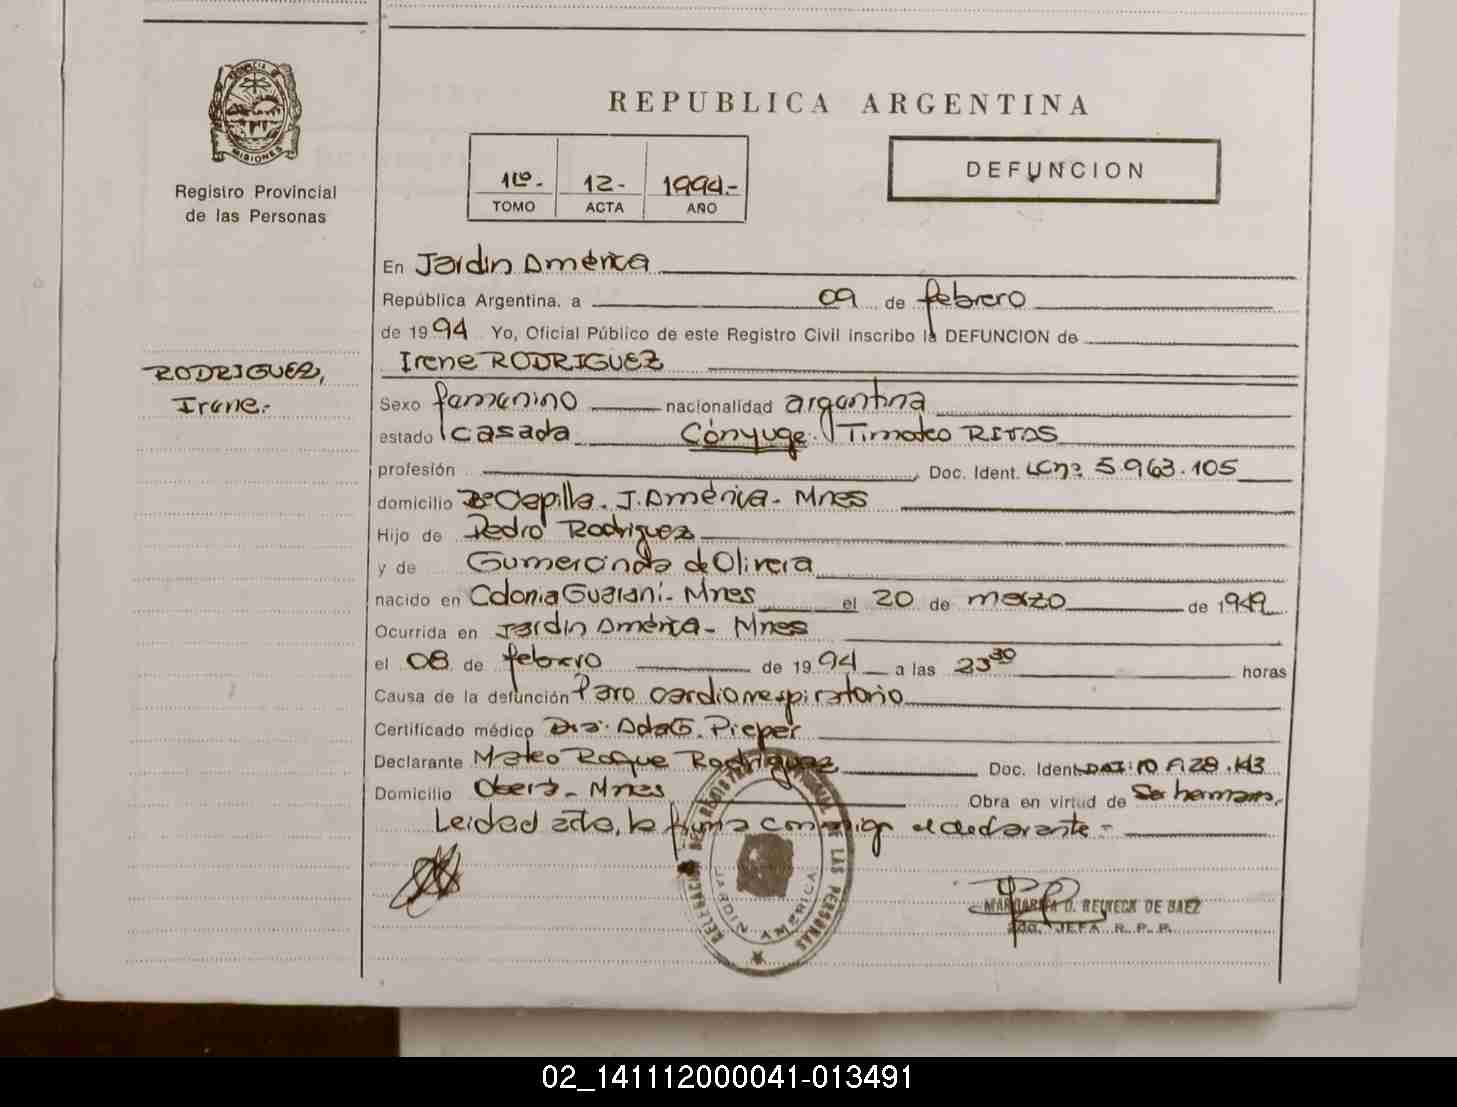 PROVINCIA DE
MISIONES
Registro Provincial
de las Personas
REPUBLICA ARGENTINA
1º.- 12- 1994.-
TOMO ACTA AÑO
DEFUNCION
En Jardín América
República Argentina. a 09 de febrero
de 1994 Yo, Oficial Público de este Registro Civil inscribo la DEFUNCION de
Irene RODRIGUEZ
RODRIGUEZ,
Irene.-
Sexo femenino nacionalidad argentina
estado casada Cónyuge: Timoteo RIVAS
profesión Doc. Ident. LCnº 5.963.105
domicilio Bº Capilla. J. América - Mnes
Hijo de Pedro Rodriguez
y de Gumercinda de Olivera
nacido en Colonia Guaraní - Mnes el 20 de marzo de 1949
Ocurrida en Jardín América - Mnes
el 08 de febrero de 1994 a las 23 30 horas
Causa de la defunción Paro cardiorrespiratorio
Certificado médico Dra. Ada G. Pieper
Declarante Mateo Roque Rodriguez Doc. Ident. DNI: 10 143
Domicilio Oberá - Mnes Obra en virtud de Ser hermano.
Leida el acta, la firma conmigo el declarante -
JARDIN AMERICA
MARGARITA D. REINECK DE BAEZ
JEFA R. P. P.
02_141112000041-013491